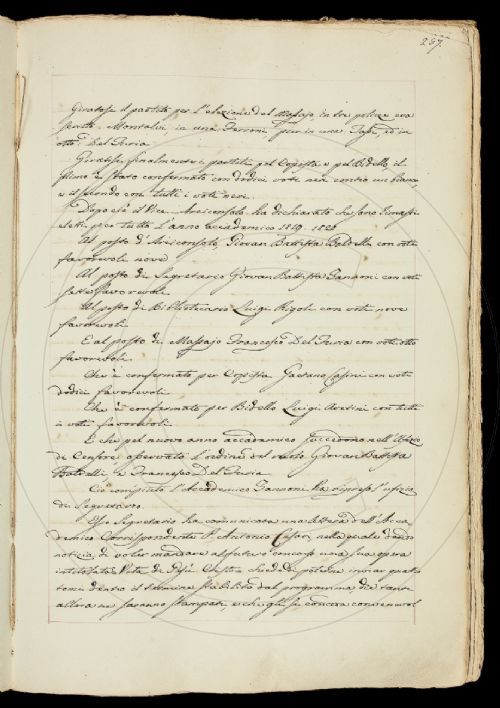 287.
Giratosi il partito per l'elezione del Massajo, in tre polize era
scritto Montalvi, in una Ferroni, pur in una Tozzi, ed in
otto Del Furia.
Giratisi finalmente i partiti pel Copista e pel Bidello, il
primo è stato confermato con dodici voti neri contro un bianco,
e il secondo con tutti i voti neri.
Dopo ciò il Vice-Arciconsolo ha dichiarato che sono rimasti
eletti per tutto l'anno accademico
Al posto d'Arciconsolo Giovan Battista Baldelli con voti
favorevoli nove
Al posto di Segretario Giovan Battista Zannoni con voti
sette favorevoli.
Al posto di Bibliotecario Luigi Rigoli con voti nove
favorevoli.
E al posto di Massajo Francesco Del Furia con voti otto
favorevoli.
Che è confermato per Copista Gaetano con voti
dodici favorevoli
Che è confermato per Bidello Luigi con tutti
i voti favorevoli.
E che pel nuovo anno accademico succedono nell'Ufizio
di Censore osservato l'ordine del ruolo Giovan Battista
e Francesco Del Furia.
Ciò compiuto l'Accademico Zannoni ha ripreso l'ufizio
di Segretario.
Esso Segretario ha comunicata una lettera dell'Acca
demico Corrispondente P. Antonio Cesari, nella quale dando
notizia di voler mandare al futuro concorso una sua opera
intitolata Vita di Gesù Cristo, chiede di poterne inviar quattro
tomi dentro il termine stabilito dal programma, che tanti
allora ne saranno stampati, e che gli si conceda